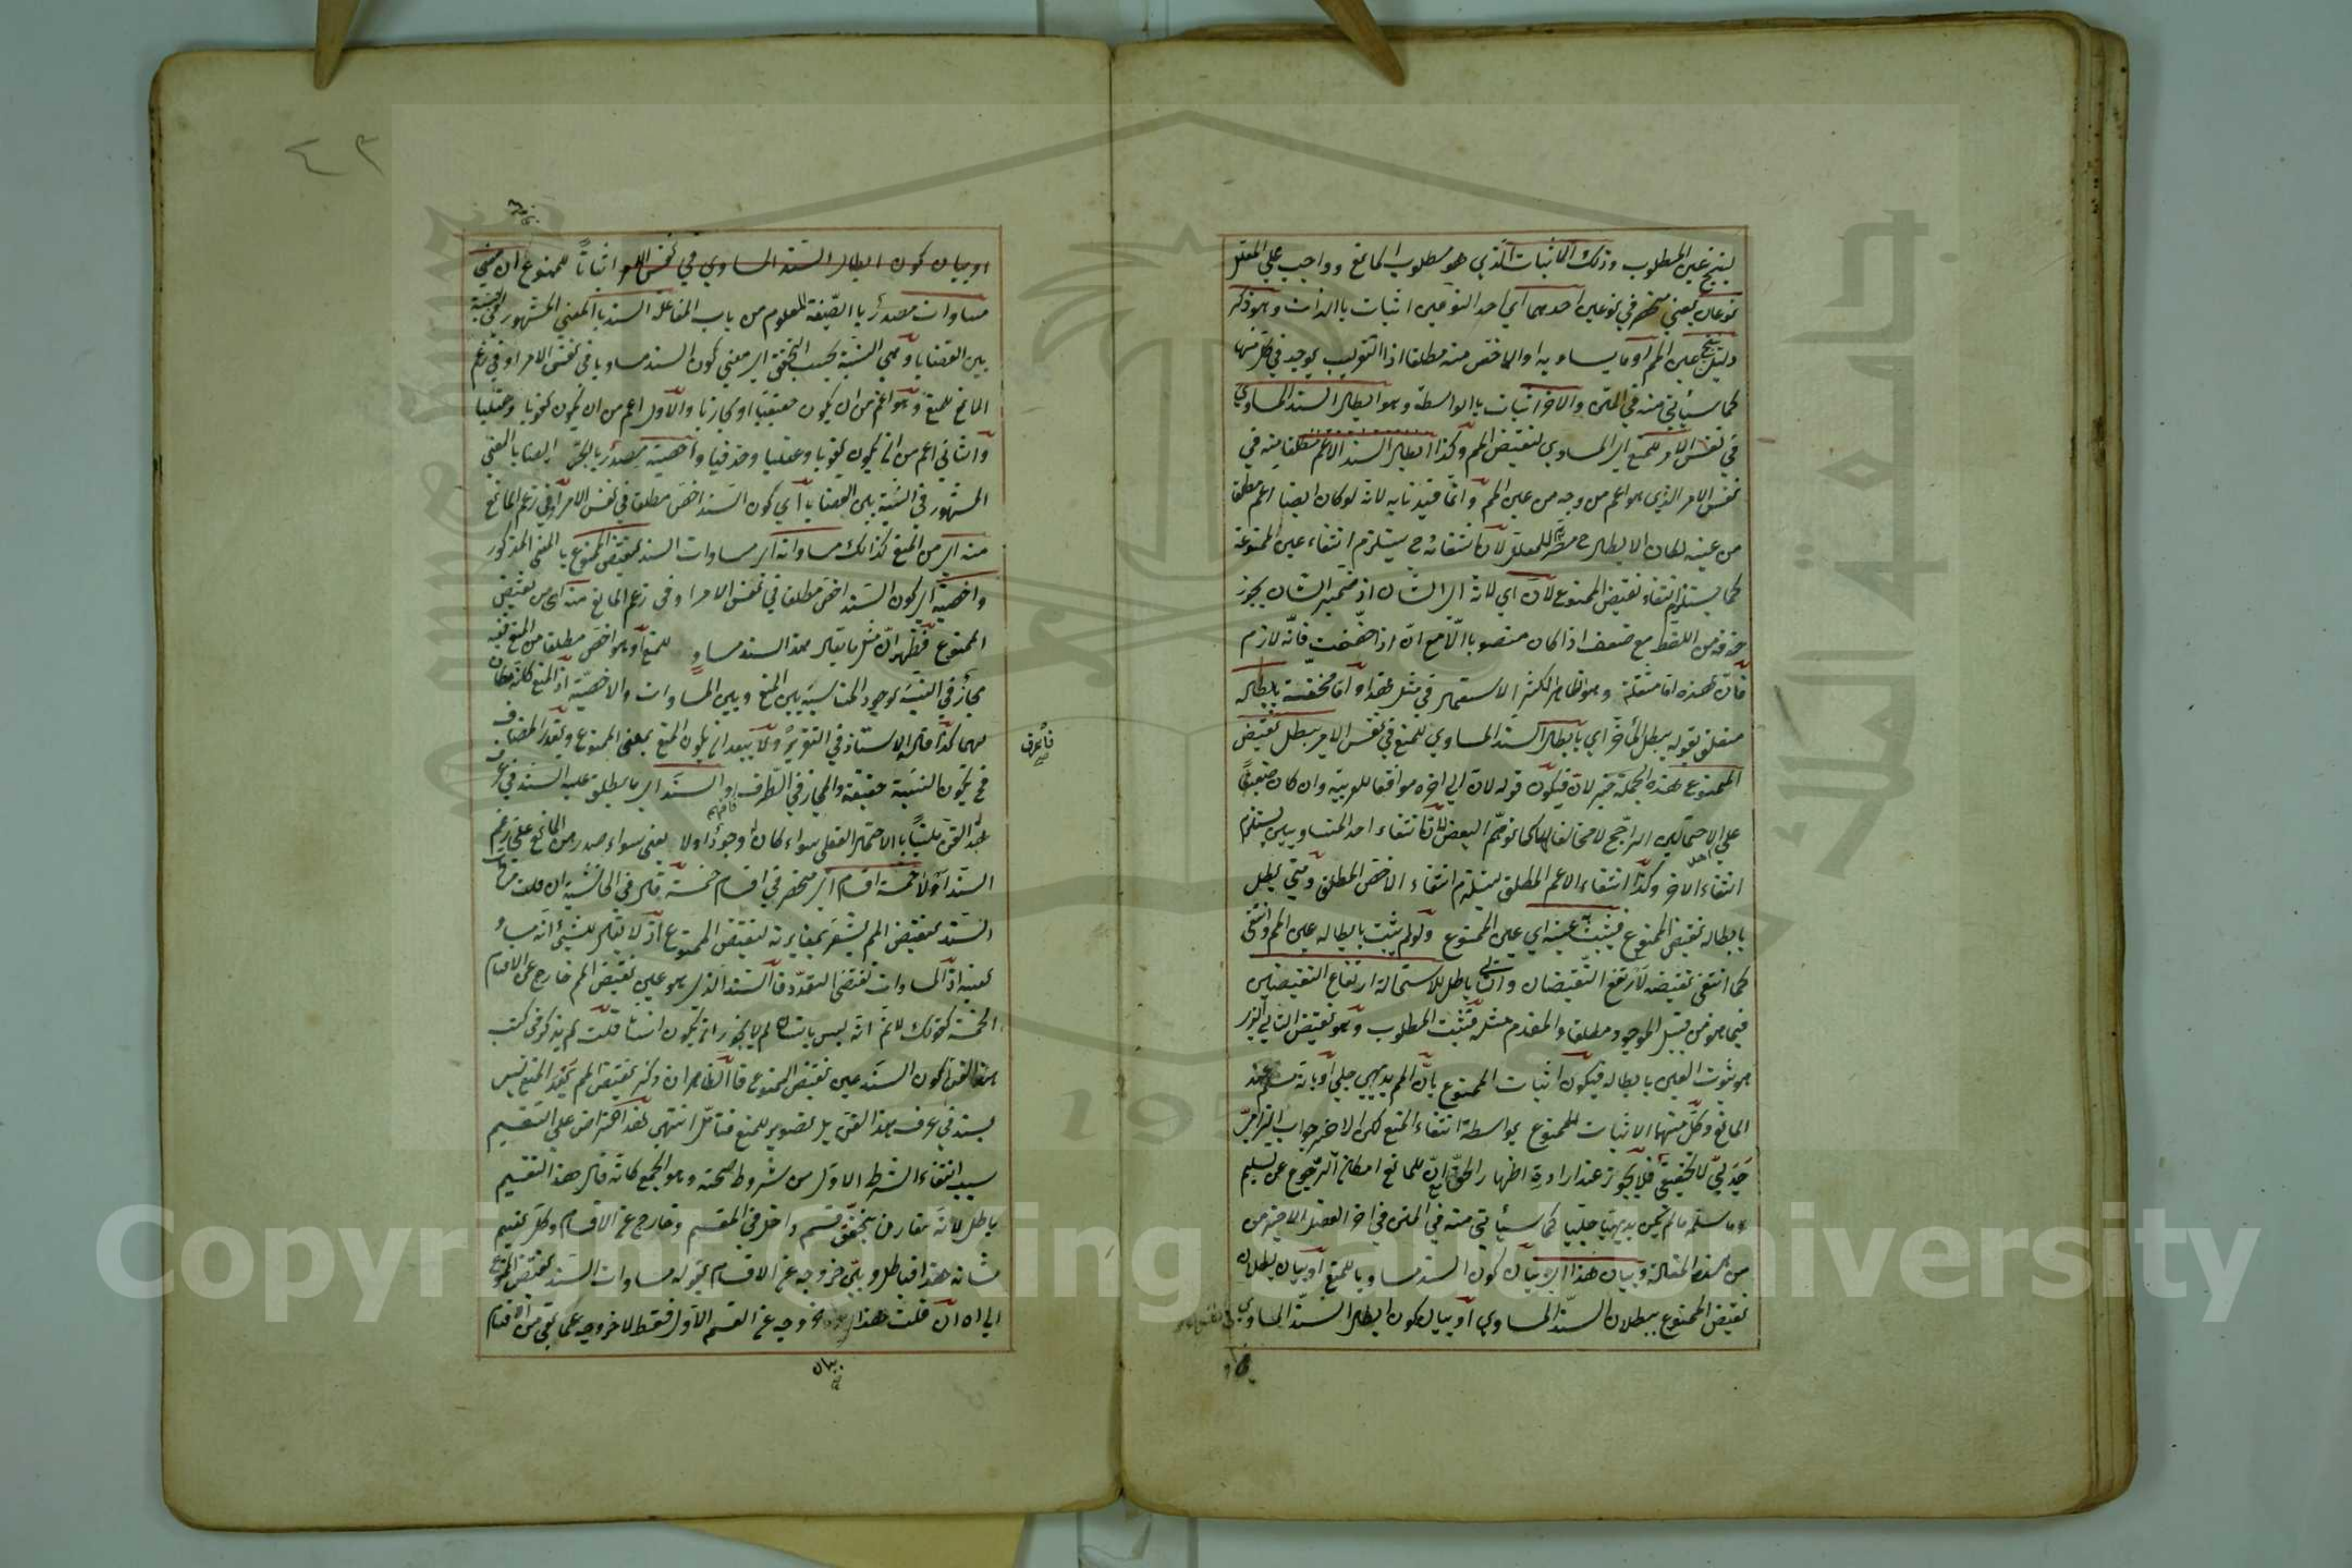 لينتج عين المطلوب وذلك الاثبات الذي هو مطلوب المانع وواجب على المعلل
نوعان يعني منحصر في نوعين احدهما اي احد النوعين اثبات بالذات وهو ذكر
دليل ينتج عين المم او ما يساويه او الاخص منه مطلقا اذ التقريب يوجد في كل منها
كما سيأتي منه في المتن والاخر اثبات بالواسطة وهو ابطال السند المساوي
في نفس الامر للمنع اي المساوي لنقيض المم وكذا ابطال السند الاعم مطلقا منه في
نفس الامر الذي هو اعم من وجه من عين المم وانما قيدنا به لانه لو كان ايضا اعم مطلقا
من عينه لكان الابطال ح مضرا للمعلل لان انتفائه ح يستلزم انتفاء عين الممنوعة
كما يستلزم انتفاء نقيض الممنوع لان اي لانه اي الشان اذ ضمير الشان يجوز
حذفه من اللفظ مع ضعف اذا كان منصوبا الا مع ان اذا خففت فانه لازم
فان هذه اما مثقلة وهو الظاهر لكثير الاستعمال في مثل هذا واما مخففة بابطاله
متعلق بقوله يبطل المأخر اي بابطال السند المساوي للمنع في نفس الامر يبطل نقيض
الممنوع هذه الجملة خبر لان فيكون قوله لان الى اخره موافقا للعربية وان كان ضعيفا
على الاحتمالين الراجح لا مخالفا لها كما توهم البعض لان انتفاء احد المتساويين يستلزم
انتفاء الاخر وكذا انتفاء الاعم المطلق يستلزم انتفاء الاخص المطلق ومتى بطل
بابطاله نقيض الممنوع فيثبت عينه اي عين الممنوع ولو لم يثبت بابطاله عين المم وانتفى
كما انتفى نقيضه لارتفع النقيضان والتالي باطل لاستحالة ارتفاع النقيضين
فيما هو من قبيل الموجود مطلقا والمقدم مثله فثبت المطلوب وهو نقيض التالي الذي
هو ثبوت العين بابطاله فيكون اثبات الممنوع بان المم بديهي جلي او بانه مسلم عند
المانع وكل منهما الاثبات للممنوع بواسطة انتفاء المنع لكن الاخير جواب الزامي
جدلي لا تحقيقي فلا يجوز عند ارادة اظهار الحق اي للمانع امكان الرجوع عن تسليم
ما سلمه ما لم يكن بديهيا جليا كما سيأتي منه في المتن في اخر الفصل الاخير من
من هذه المقالة وبيان هذا اي بيان كون السند مساويا للمنع او بيان بطلان
نقيض الممنوع ببطلان السند المساوي او بيان كون ابطال السند المساوي
او بيان كون ابطال السند المساوي في نفس الامر اثباتا للممنوع
مساوات مصدر بالصيغة المعلوم من باب المفاعلة السند بالمعنى المشهور في النسبة
بين القضايا وهي النسبة بحسب التحقق اي معنى كون السند مساويا في نفس الامر او في زعم
المانع للمنع وهو اعم من ان يكون حقيقيا او مجازيا والاول اعم من ان يكون لغويا وعقليا
والثاني اعم من ان يكون لغويا وعقليا وحذفيا واخصيته مصدر بالجر ايضا بالمعنى
المشهور في النسبة بين القضايا اي كون السند اخص مطلقا في نفس الامر او في زعم المانع
منه اي من المنع كذلك مساواته اي مساوات السند لنقيض الممنوع بالمعنى المذكور
واخصيته اي كون السند اخص مطلقا في نفس الامر او في زعم المانع منه اي من نقيض
الممنوع فظهر ان مثل ما يقال هذا السند مساو للمنع او هو اخص مطلقا من المنع ففيه
مجاز في النسبة لوجود المناسبة بين المنع وبين المساوات والاخصية اذ المنع كانه مكان
لهما كذا قال الاستاذ في التقرير ولا يبعد ان يكون المنع بمعنى الممنوع ويقدر المضاف
فح تكون النسبة حقيقة والمجاز في الطرف والسند اي ما يطلق عليه السند في عرف
فافهم
هذا الفن ملتبسا بالاحتمال العقلي سواء كان موجودا او لا يعني سواء صدر من المانع على زعم
السند اولا خمسة اقسام اي منحصر في اقسام خمسة قال في الحاشية ان قلت
السند لنقيض المم يشعر بمغايرته لنقيض الممنوع اذ لا يقال للشيء انه مساو
لعينه اذ المساوات تقتضي التعدد فالسند الذي هو عين نقيض المم خارج عن الاقسام
الخمسة كقولك لا نم انه ليس بانسان لم لا يجوز ان يكون انسانا قلت لم يذكر في كتب
هذا الفن كون السند عين نقيض الممنوع فالظاهر ان ذكر نقيض المم بعد المنع ليس
بسند في عرف هذا الفن بل تصوير للمنع فتأمل انتهى هذا اعتراض على التقسيم
بسبب انتفاء الشرط الاول من شروط صحته وهو الجمع كانه قال هذا التقسيم
باطل لانه مقارن بتحقق قسم داخل في المقسم وخارج عن الاقسام وكل تقسيم
شانه هذا فباطل وبين خروجه عن الاقسام بقوله مساوات السند لنقيض الممنوع
الى اه ان قلت هذا خروجه عن القسم الاول فقط لا خروجه عما بقي من اقسام
بيان
فاعرف
٤٣
Copyright © King Saud University
جامعة الملك سعود
1957